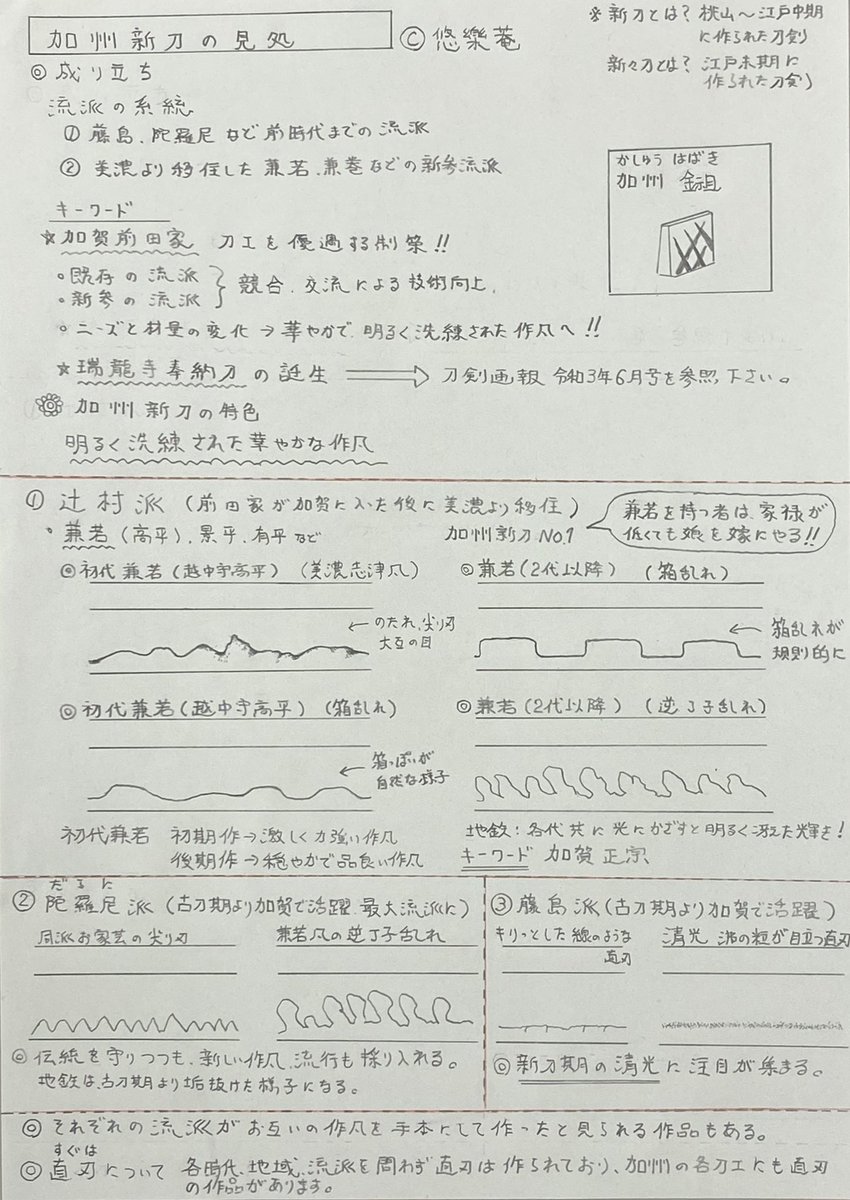 加州新刀の見処
© 悠樂菴
※新刀とは? 桃山〜江戸中期
に作られた刀剣
新々刀とは? 江戸末期に
作られた刀剣)
◎成り立ち
流派の系統
① 藤島、陀羅尼など前時代までの流派
② 美濃より移住した兼若、兼巻などの新参流派
かしゅう はばき
加州 鎺
キーワード
☆加賀前田家 刀工を優遇する制策!!
○既存の流派
○新参の流派
} 競合、交流による技術向上、
○ニーズと材量の変化→華やかで、明るく洗練された作風へ!!
☆瑞龍寺奉納刀の誕生 ⇒ 刀剣画報 令和3年6月号を参照下さい。
加州新刀の特色
明るく洗練された華やかな作風
① 辻村派 (前田家が加賀に入た後に美濃より移住)
・兼若(高平)、景平、有平など
加州新刀No.1
兼若を持つ者は、家禄が
低くても娘を嫁にやる!!
◎初代兼若(越中守高平) (美濃志津風)
←のたれ、尖り刃
大互の目
◎兼若(2代以降) (箱乱れ)
←箱乱れが
規則的に
◎初代兼若(越中守高平) (箱乱れ)
←箱っぽいが
自然な様子
◎兼若(2代以降) (逆丁子乱れ)
初代兼若 初期作→激しく力強い作風
後期作→穏やかで品良い作風
地鉄:各代共に光にかざすと明るく冴えた輝き!
キーワード 加賀正宗
だらに
② 陀羅尼派(古刀期より加賀で活躍、最大流派に)
同派お家芸の尖り刃
兼若風の逆丁子乱れ
◎伝統を守りつつも、新しい作風、流行も採り入れる。
地鉄は、古刀期より垢抜けた様子になる。
③藤島派(古刀期より加賀で活躍)
キリっとした線のような
直刃
清光 沸の粒が目立つ直刃
◎新刀期の清光に注目が集まる。
◎それぞれの流派がお互いの作風を手本にして作ったと見られる作品もある。
すぐは
◎直刃について 各時代、地域、流派を問わず直刃は作られており、加州の各刀工にも直刃
の作品があります。